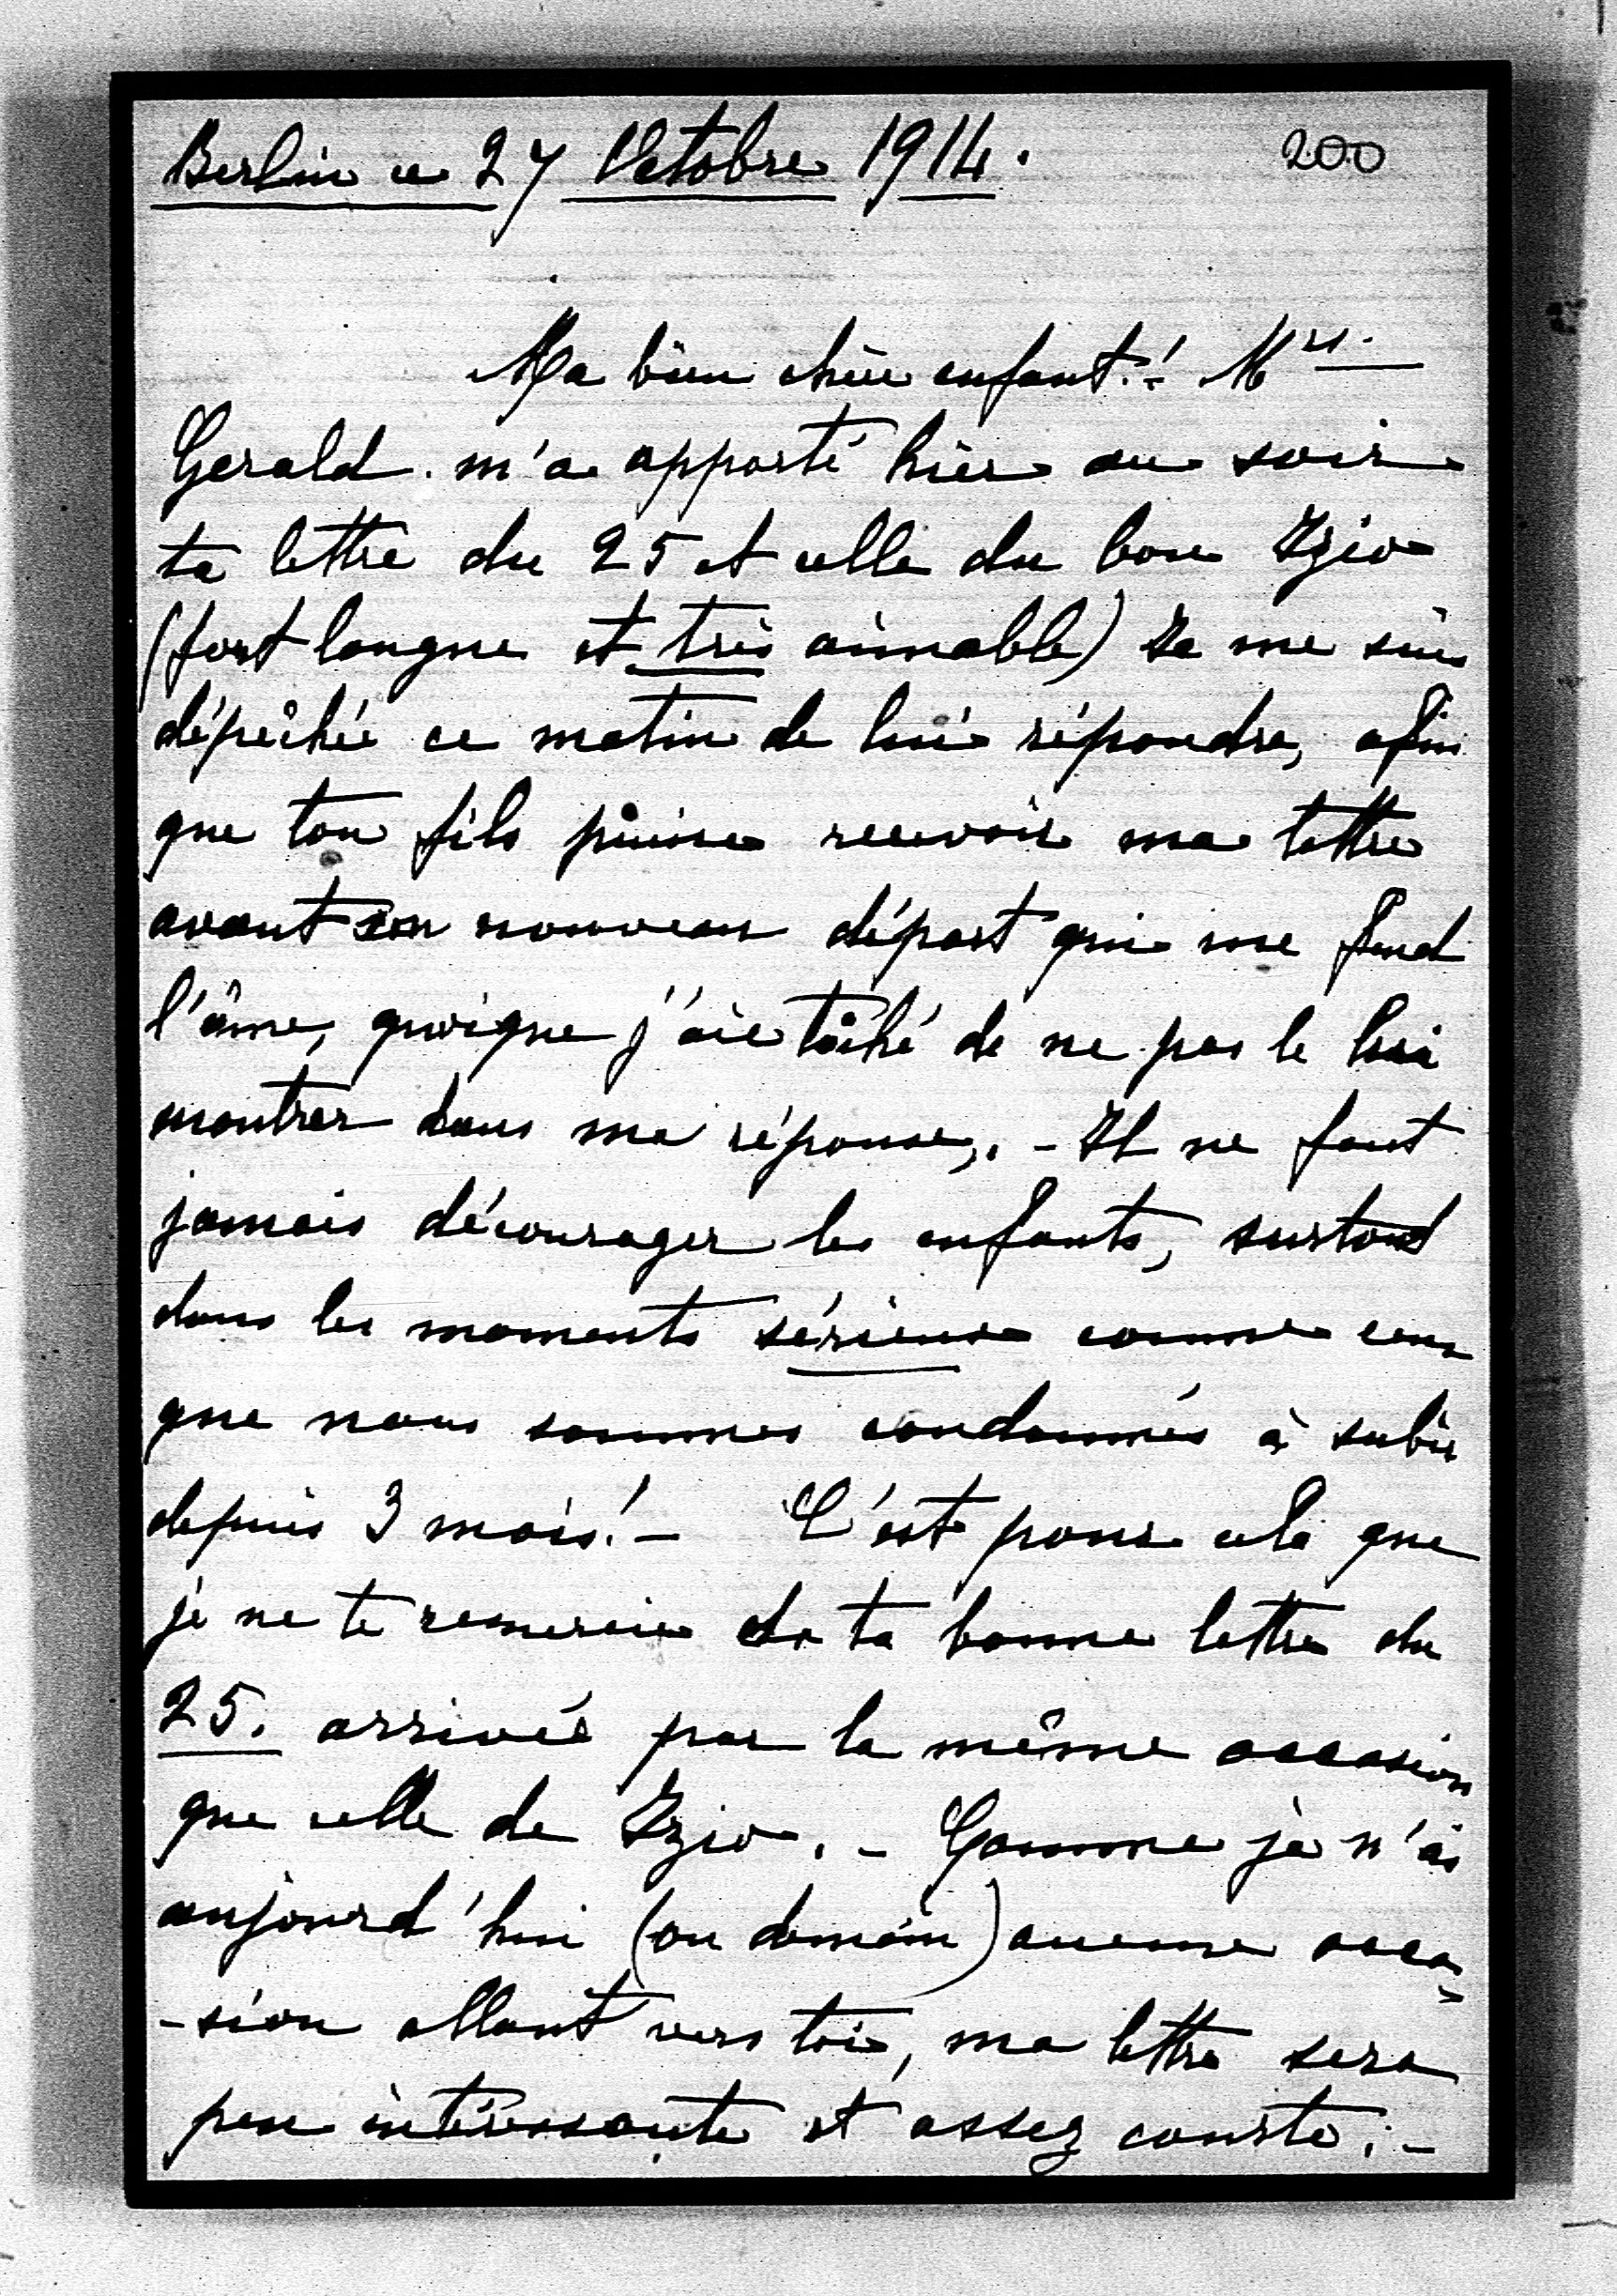 Berlin ce 27 Octobre 1914.
200
Ma bien chère enfant! Mrs.
Gerald m'a apporté hier au soir
ta lettre du 25 et celle du bon Izio
(fort longue et très aimable) Je me suis
dépêchée ce matin de lui répondre, afin
que ton fils puisse recevoir ma lettre
avant son nouveau départ qui me fend
l'âme, quoique j'aie tâché de ne pas le lui
montrer dans ma réponse,. - Il ne faut
jamais décourager les enfants, surtout
dans les moments sérieux comme ceux
que nous sommes condamnés à subir
depuis 3 mois! - C'est pour cela que
je ne te remercie de ta bonne lettre du
25. arrivée par la même occasion
que celle de Izio. - Comme je n'ai
aujourd'hui (ou demain) aucune occa-
-sion allant vers toi, ma lettre sera
peu intéressante et assez courte; -